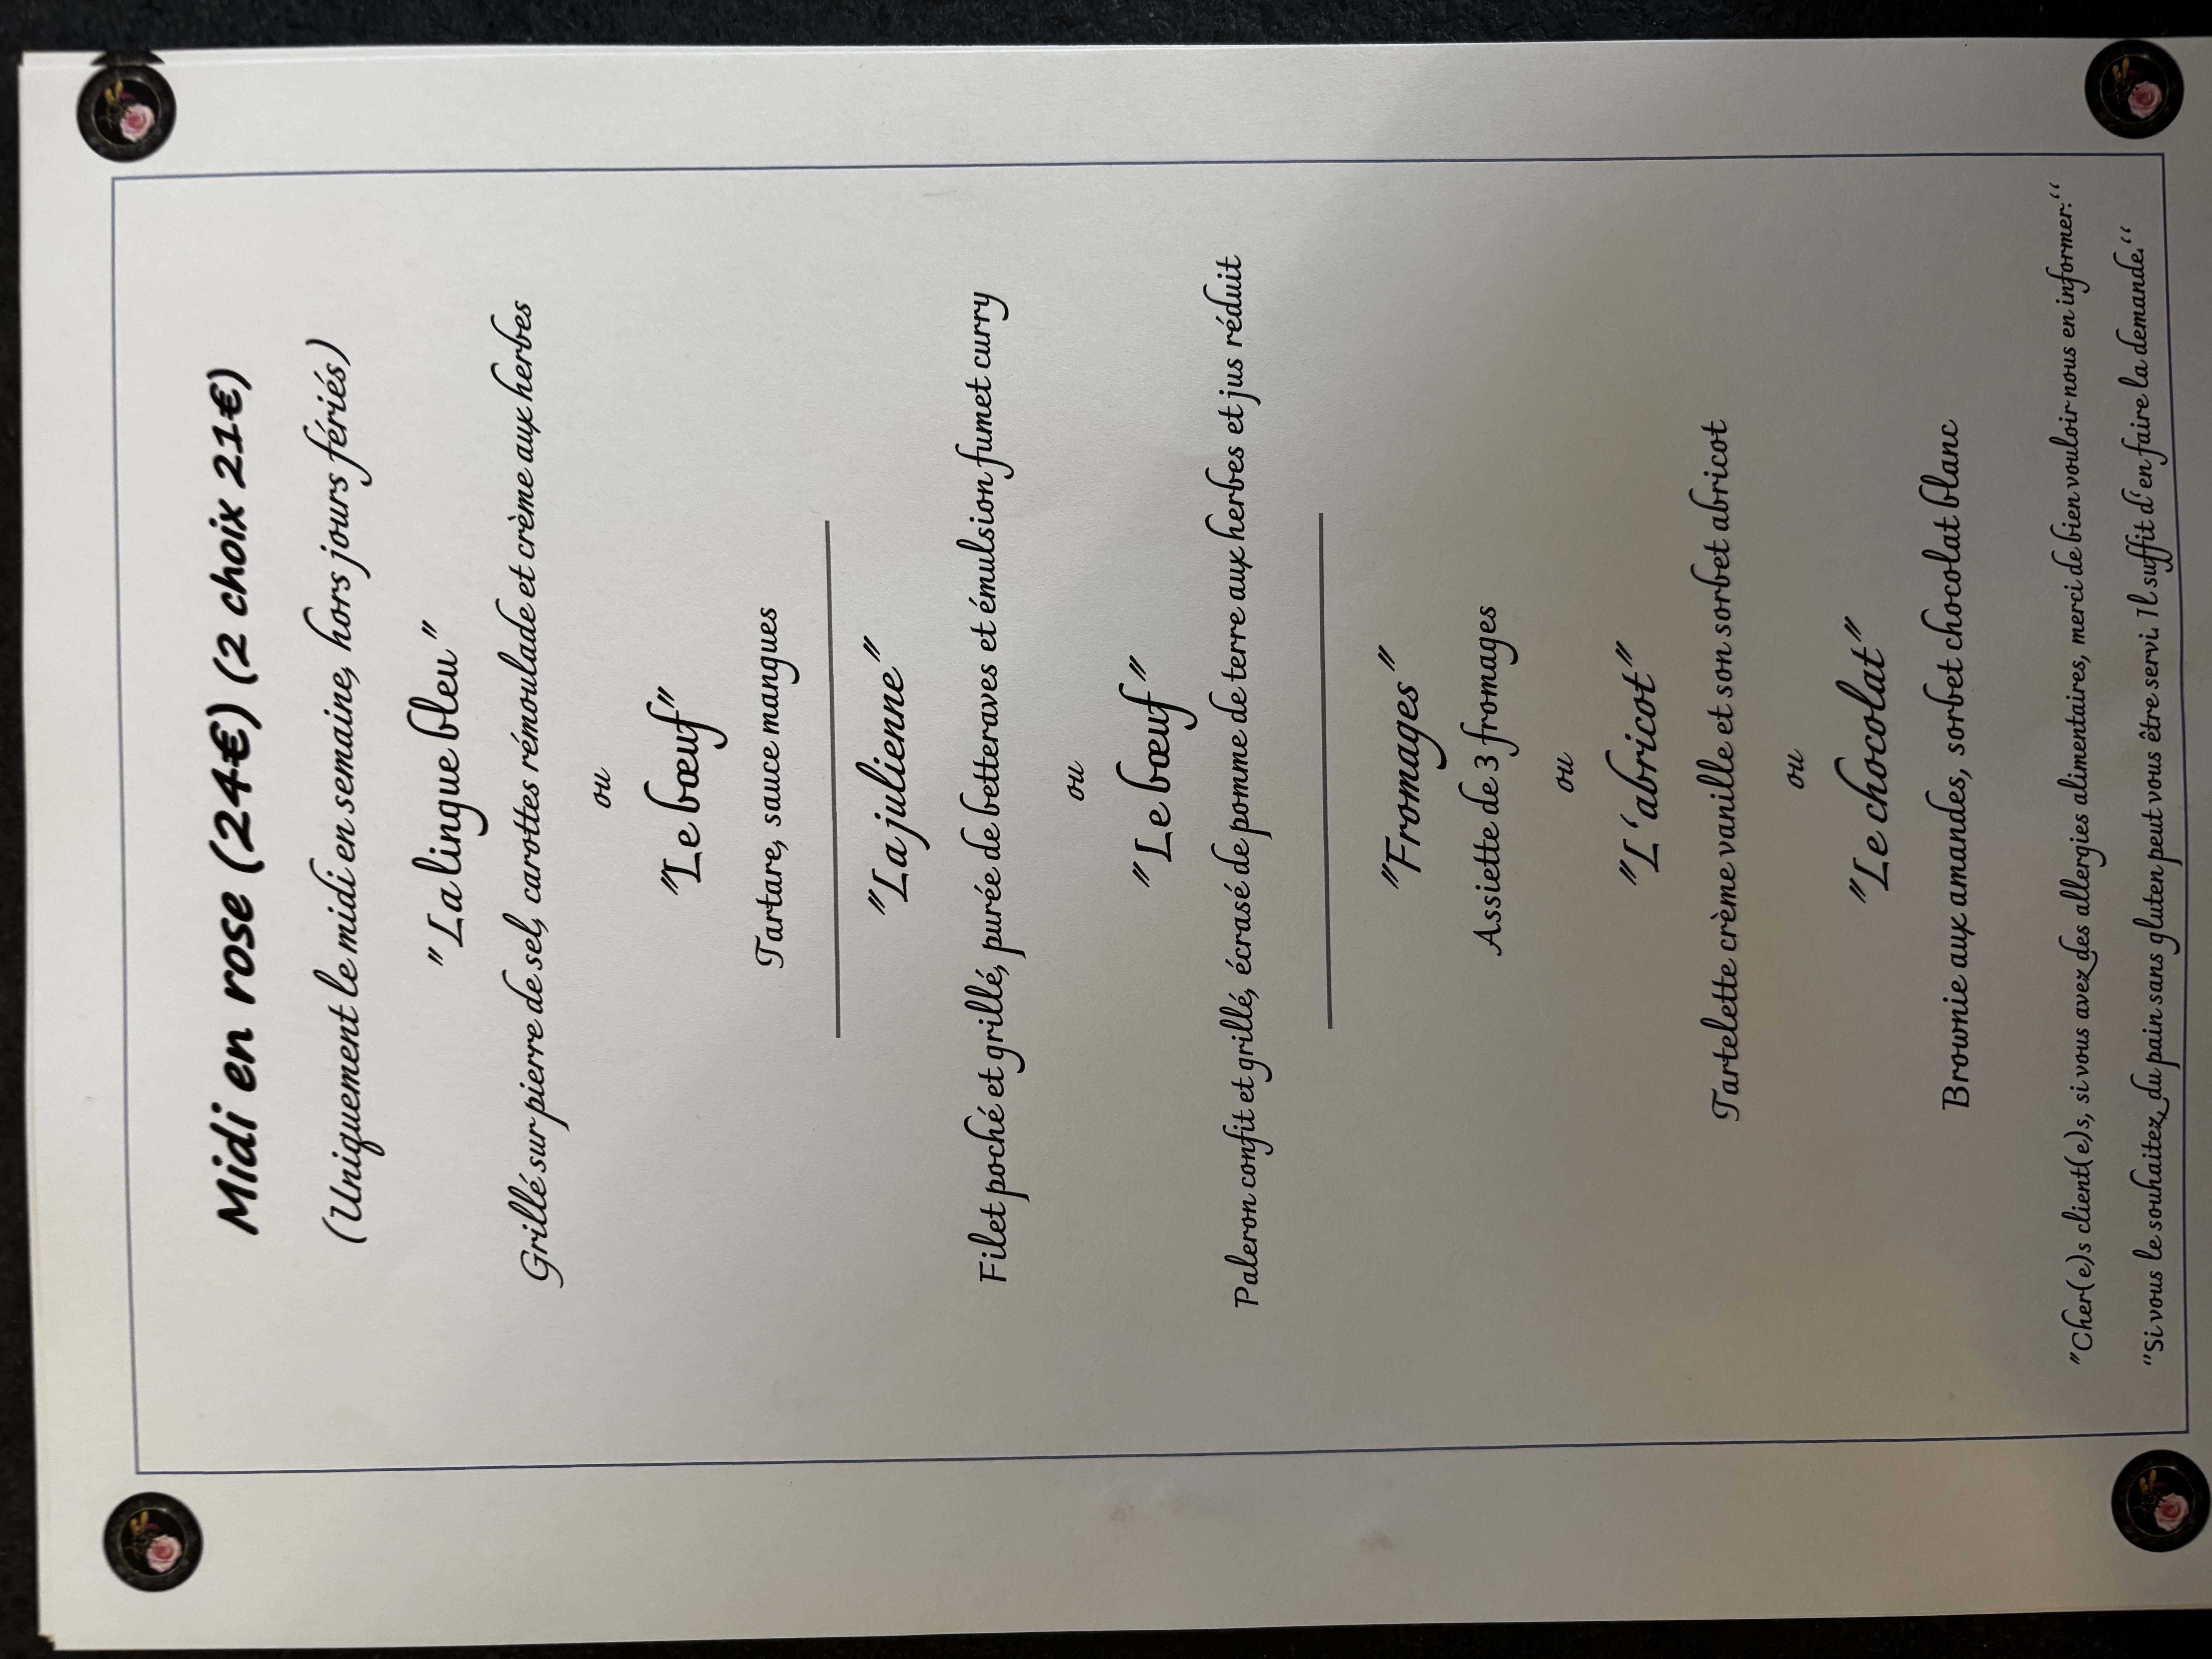 Midi en rose (24€) (2 choix 21€)
(Uniquement le midi en semaine, hors jours fériés)
"La lingue bleu"
Grillé sur pierre de sel, carottes rémoulade et crème aux herbes
ou
"Le bœuf"
Tartare, sauce mangues
"La julienne"
Filet poché et grillé, purée de betteraves et émulsion fumet curry
ou
"Le bœuf"
Paleron confit et grillé, écrasé de pomme de terre aux herbes et jus réduit
"Fromages"
Assiette de 3 fromages
ou
"L'abricot"
Tartelette crème vanille et son sorbet abricot
ou
"Le chocolat"
Brownie aux amandes, sorbet chocolat blanc
"Cher(e)s client(e)s, si vous avez des allergies alimentaires, merci de bien vouloir nous en informer."
"Si vous le souhaitez, du pain sans gluten peut vous être servi. Il suffit d'en faire la demande."